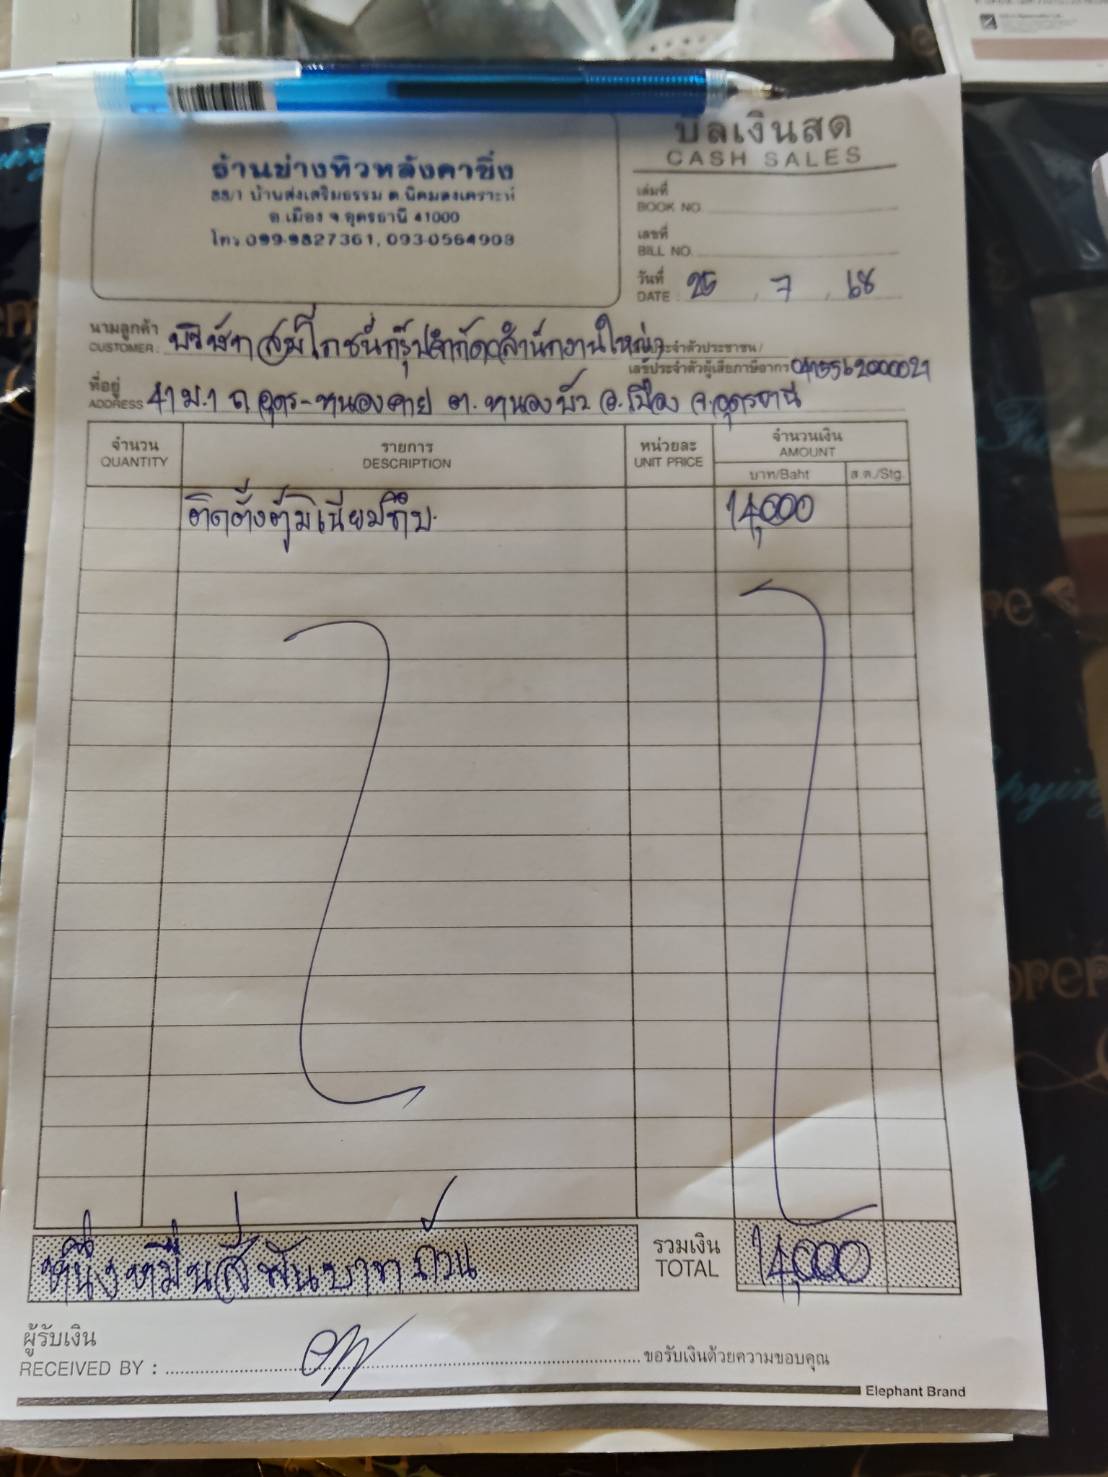 บิลเงินสด
CASH SALES
ร้านช่างทิวหลังคาซิ่ง
88/1 บ้านส่งเสริมธรรม ต.นิคมสงเคราะห์
อ.เมือง จ.อุดรธานี 41000
โทร 099-9827361, 093-0564903
เล่มที่
BOOK NO.
เลขที่
BILL NO.
วันที่
DATE : 25 , 7 , 68
นามลูกค้า
CUSTOMER: บริษัท สมโภชน์กรุ๊ปจำกัด(สำนักงานใหญ่)
เลขประจำตัวผู้เสียภาษีอากร 0415562000021
ที่อยู่
ADDRESS 41 ม.1 ถ.อุดร-หนองคาย ต.หนองบัว อ.เมือง จ.อุดรธานี
จำนวน รายการ หน่วยละ จำนวนเงิน
QUANTITY DESCRIPTION UNIT PRICE AMOUNT
บาท/Baht ส.ต./Stg.
ติดตั้ง 14,000
หนึ่งหมื่นสี่พันบาทถ้วน
รวมเงิน
TOTAL 14,000
ผู้รับเงิน
RECEIVED BY : ขอรับเงินด้วยความขอบคุณ
Elephant Brand